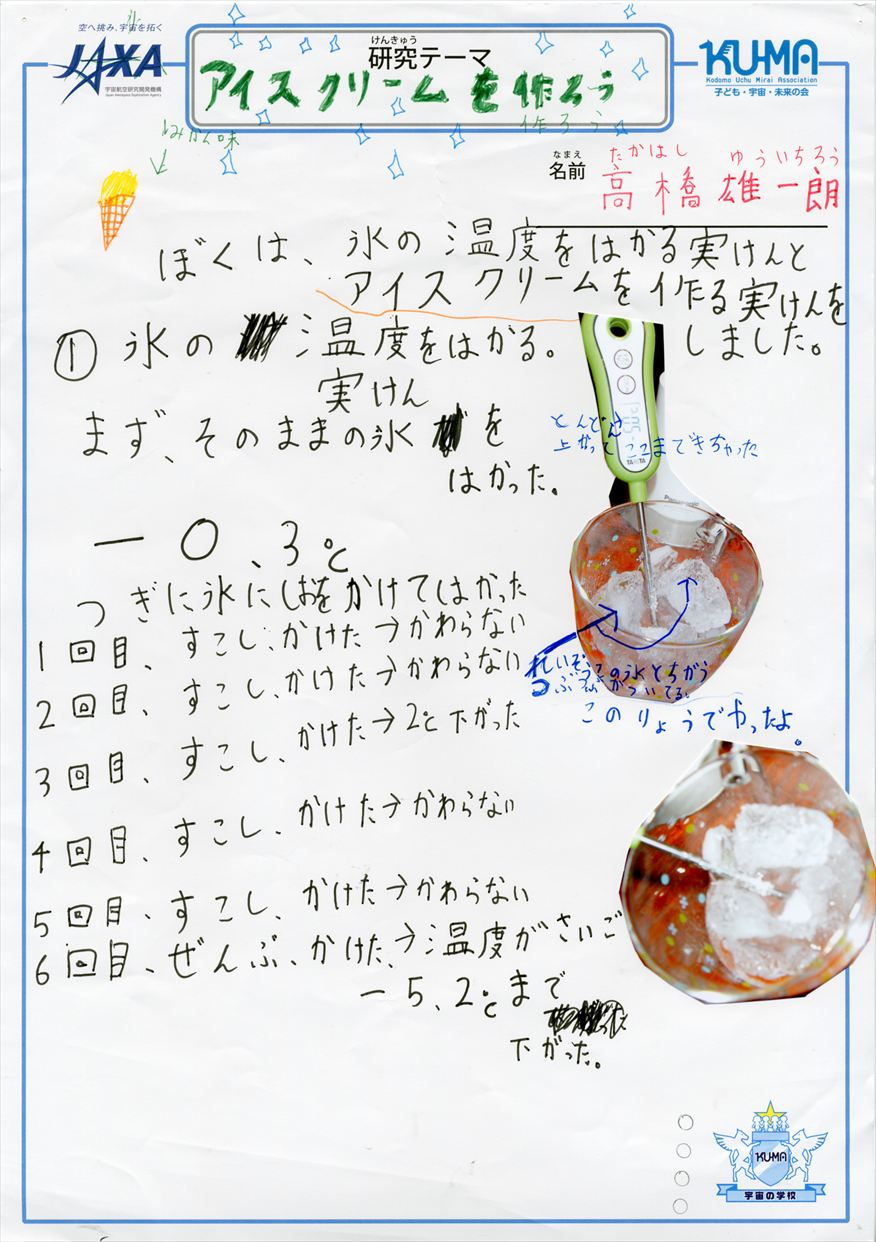 空へ挑み、宇宙を拓く
JAXA
宇宙航空研究開発機構
Japan Aerospace Exploration Agency
けんきゅう
研究テーマ
アイスクリームを作ろう
作ろう
KU-MA
Kodomo Uchu Mirai Association
子ども・宇宙・未来の会
みかん味
なまえ
名前
たかはし ゆういちろう
高橋雄一朗
ぼくは、氷の温度をはかる実けんと
アイスクリームを作る実けんを
しました。
① 氷の温度をはかる。
実けん
まず、そのままの氷を
はかった。
とんどん
上がってここまできちゃった
-0.3℃
つぎに氷にしおをかけてはかった
1回目、すこし、かけた→かわらない
2回目、すこし、かけた→かわらない
3回目、すこし、かけた→2℃下がった
4回目、すこし、かけた→かわらない
5回目、すこし、かけた→かわらない
6回目、ぜんぶ、かけた、→温度がさいご
-5.2℃まで
下がった。
の氷とちがう
このりょうでやったよ。
KU-MA
宇宙の学校